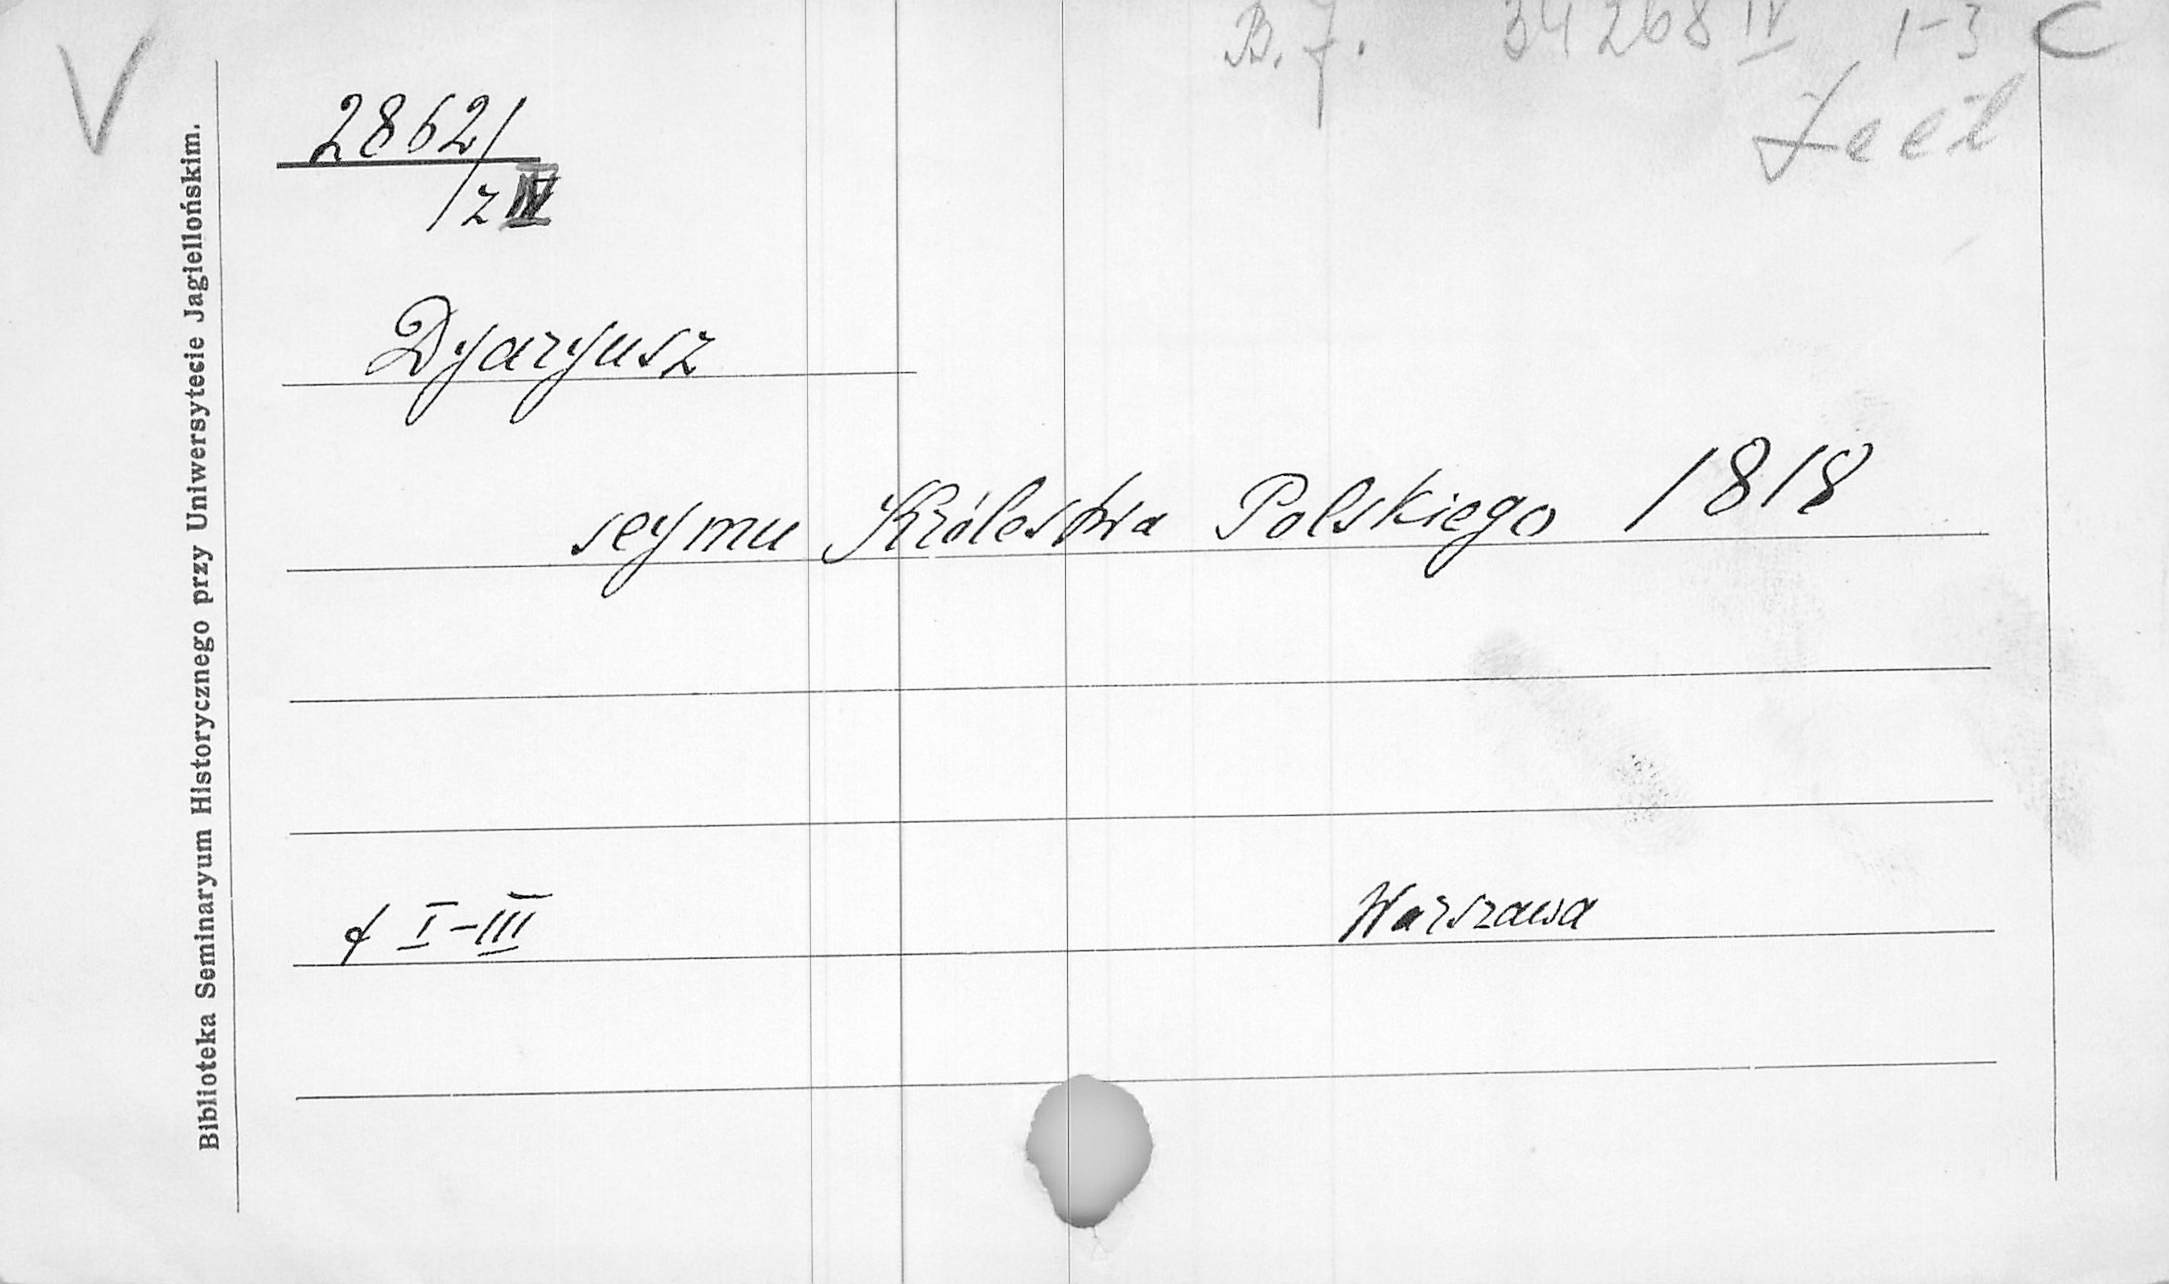 V
B. J. 34268 IV 1-3 C
2862/
z IV
Dyaryusz
seymu Królestwa Polskiego 1818
t I-III
Warszawa
Biblioteka Seminaryum Historycznego przy Uniwersytecie Jagiellońskim.